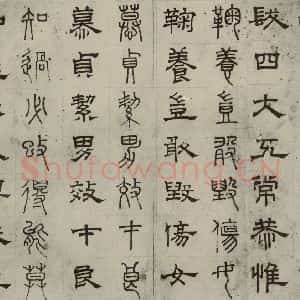 髮四大五常恭惟
鞠養豈敢毀傷女
鞠養豈敢毀傷女
慕貞絜男效才良
慕貞絜男效才良
知過必改得能莫
Shufawang.CN